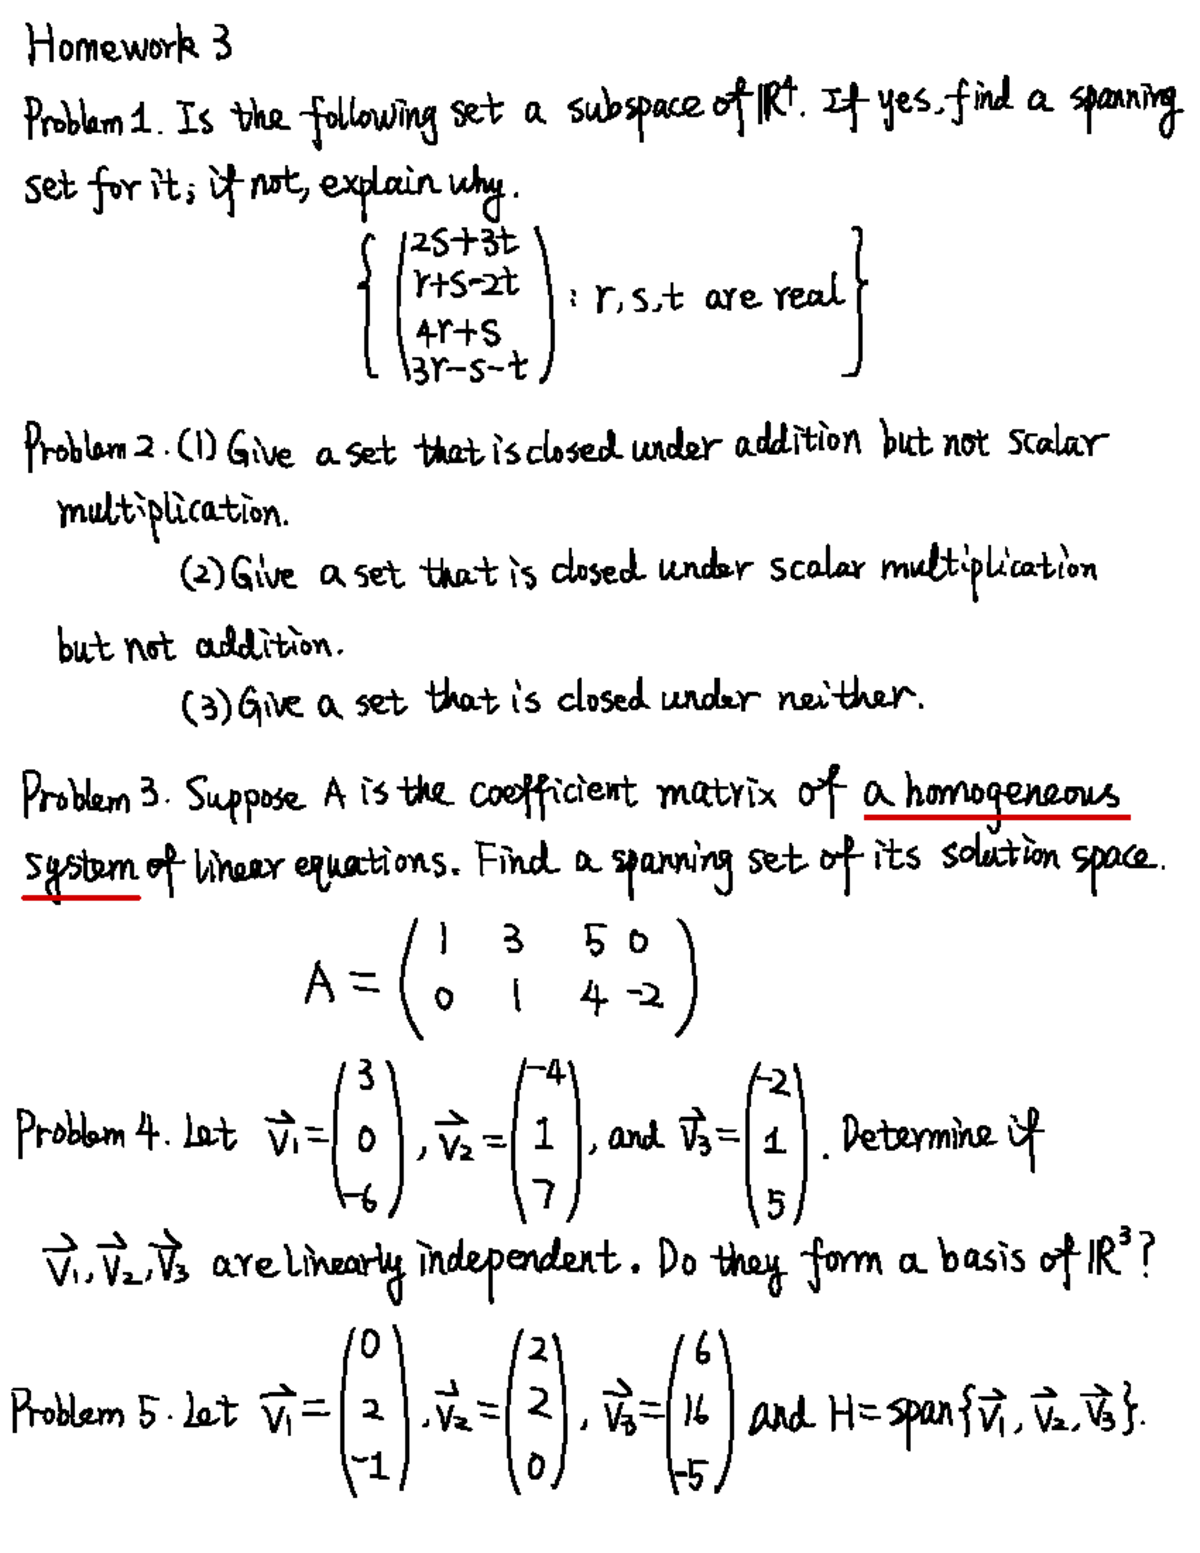 Homework 3
Problem 1. Is the following set a subspace of ℝ⁴. If yes, find a spanning
set for it; if not, explain why.
{ ( 2s+3t
r+s-2t
4r+s
3r-s-t ) : r, s, t are real }
Problem 2. (1) Give a set that is closed under addition but not scalar
multiplication.
(2) Give a set that is closed under scalar multiplication
but not addition.
(3) Give a set that is closed under neither.
Problem 3. Suppose A is the coefficient matrix of a homogeneous
system of linear equations. Find a spanning set of its solution space.
A = ( 1 3 5 0
0 1 4 -2 )
Problem 4. Let v⃗₁ = ( 3 0 -6 ), v⃗₂ = ( -4 1 7 ), and v⃗₃ = ( -2 1 5 ). Determine if
v⃗₁, v⃗₂, v⃗₃ are linearly independent. Do they form a basis of ℝ³?
Problem 5. Let v⃗₁ = ( 0 2 -1 ), v⃗₂ = ( 2 2 0 ), v⃗₃ = ( 6 16 -5 ) and H = span{v⃗₁, v⃗₂, v⃗₃}.